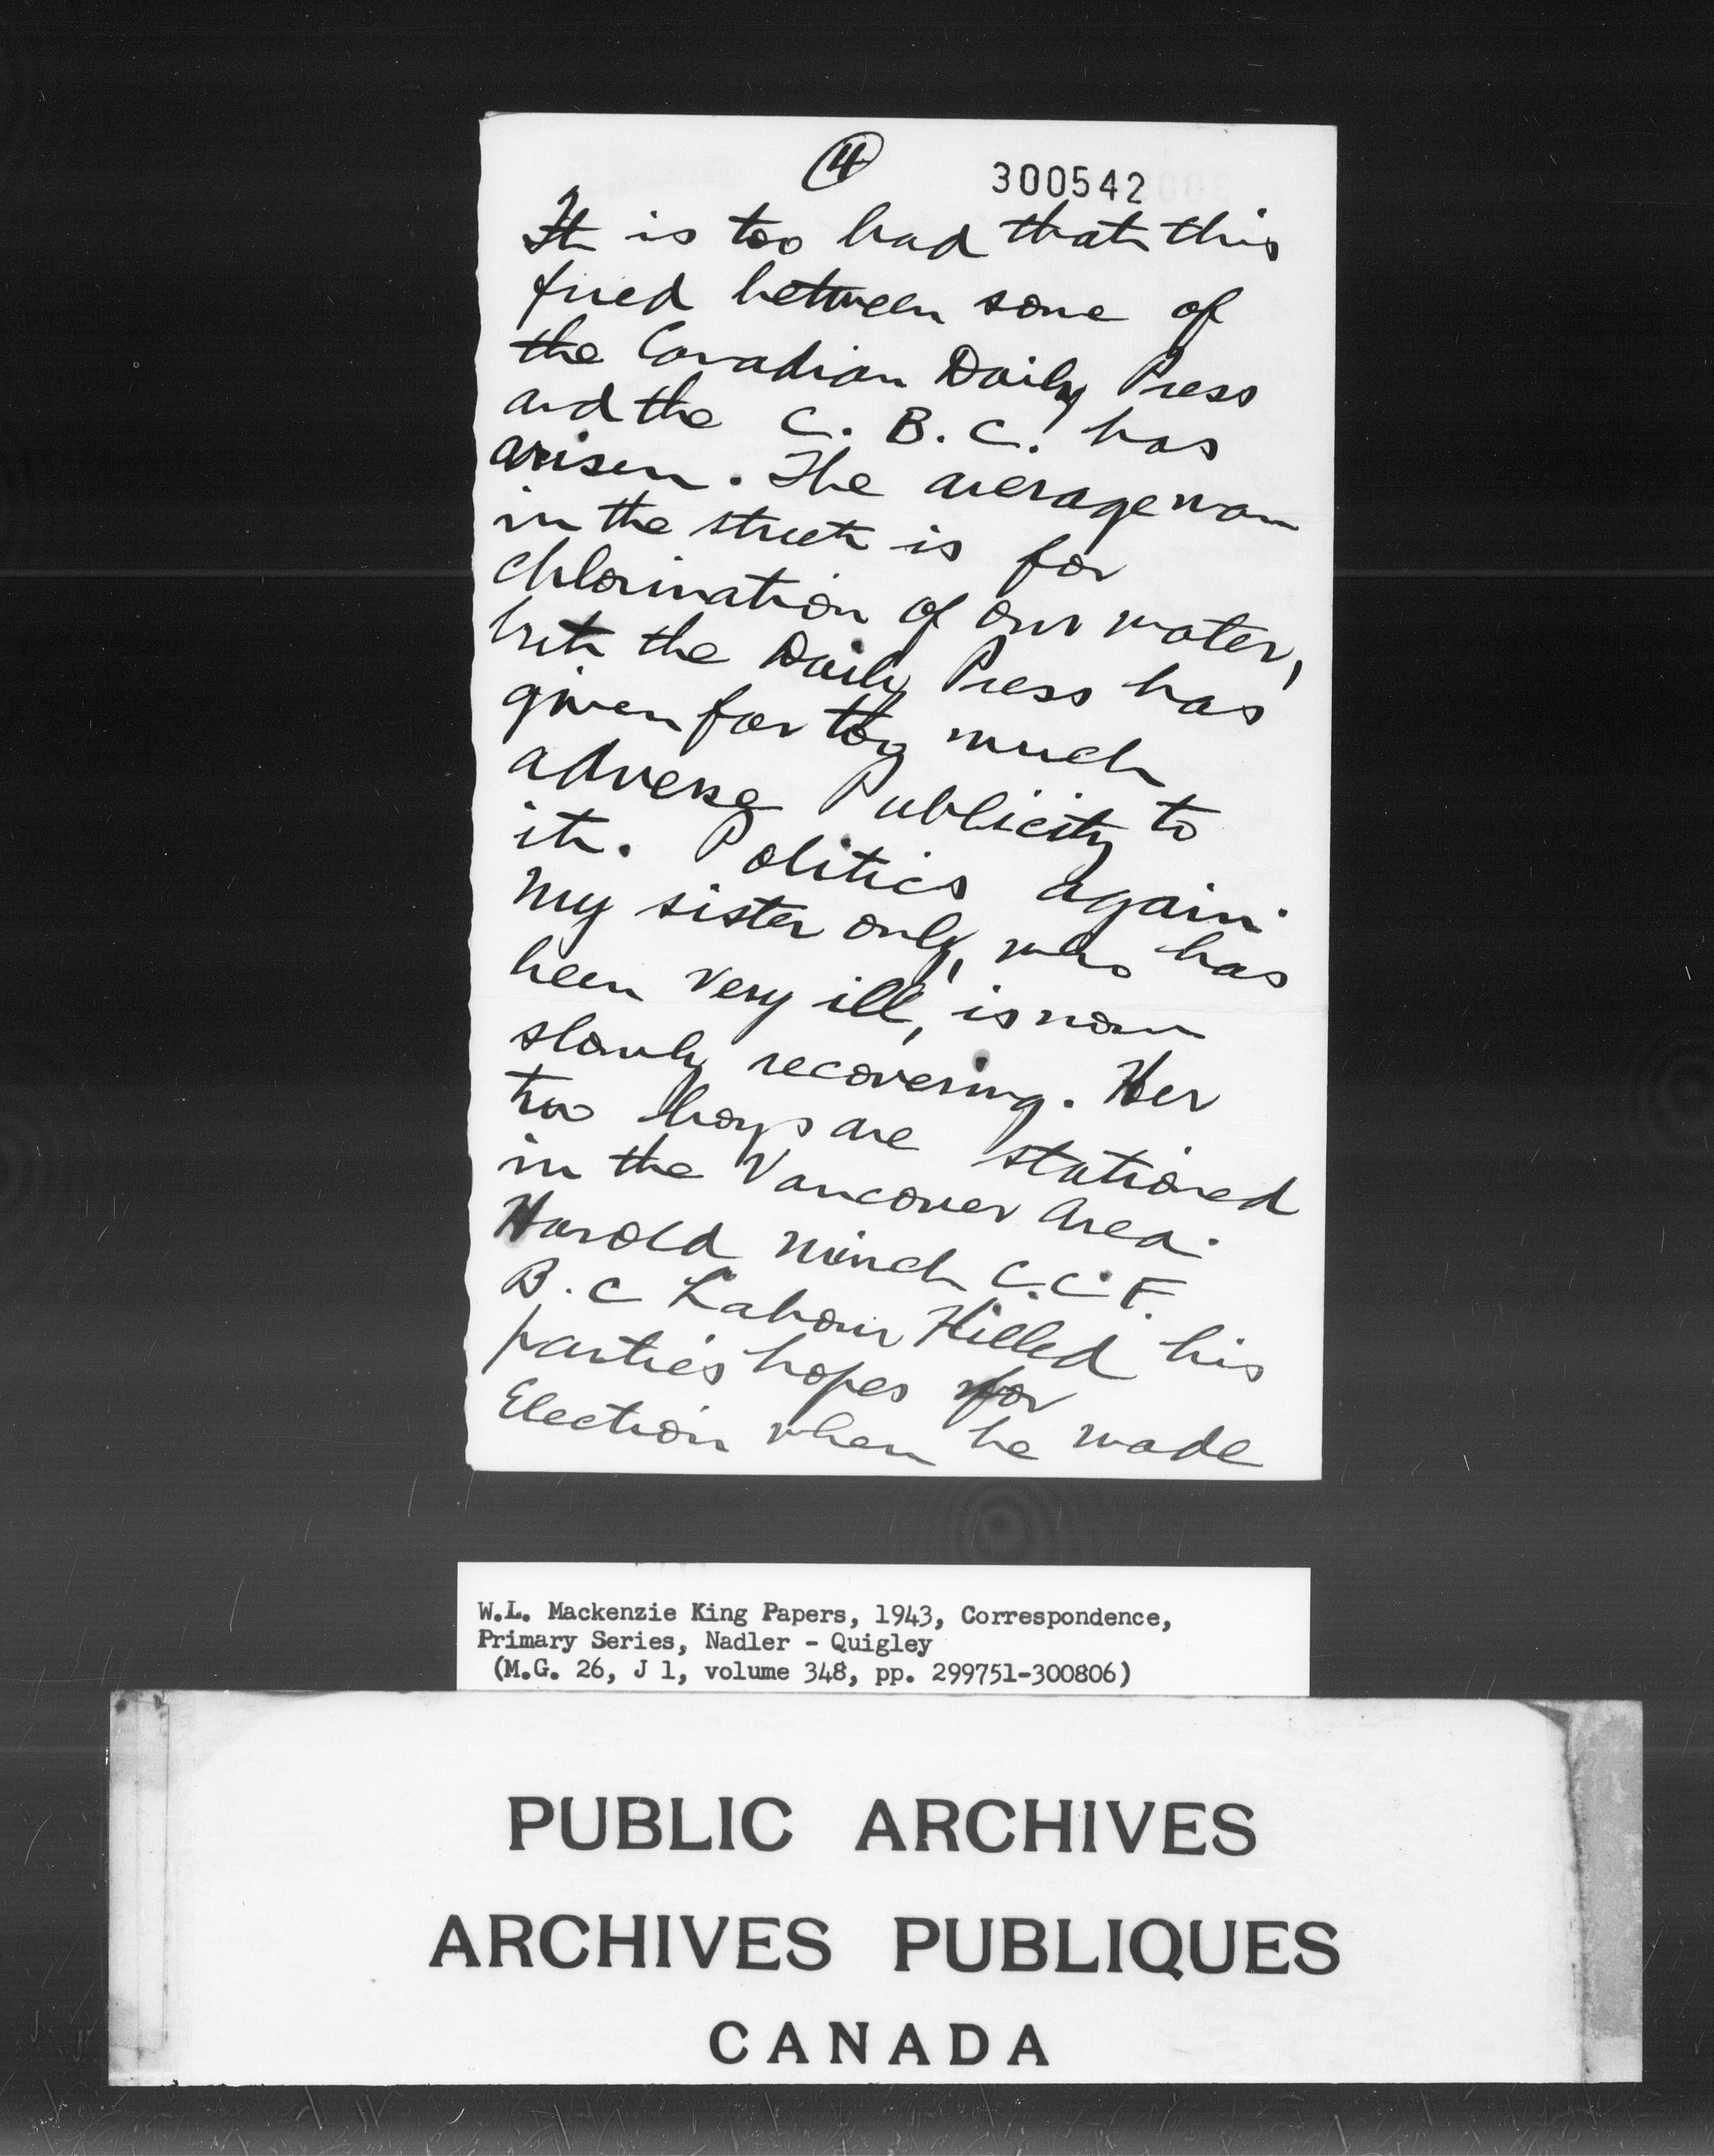 4
300542
It is too bad that this
fued between some of
the Canadian Daily Press
and the C. B. C. has
arisen. The average man
in the street is for
chlorination of our water,
but the Daily Press has
given far too much
adverse Publicity to
it. Politics again.
My sister only, who has
been very ill, is now
slowly recovering. Her
two boys are stationed
in the Vancouver Area.
Harold Winch C.C.F.
B.C Labour Killed his
partie's hopes for
Election when he made
W.L. Mackenzie King Papers, 1943, Correspondence,
Primary Series, Nadler - Quigley
(M.G. 26, J 1, volume 348, pp. 299751-300806)
PUBLIC ARCHIVES
ARCHIVES PUBLIQUES
CANADA